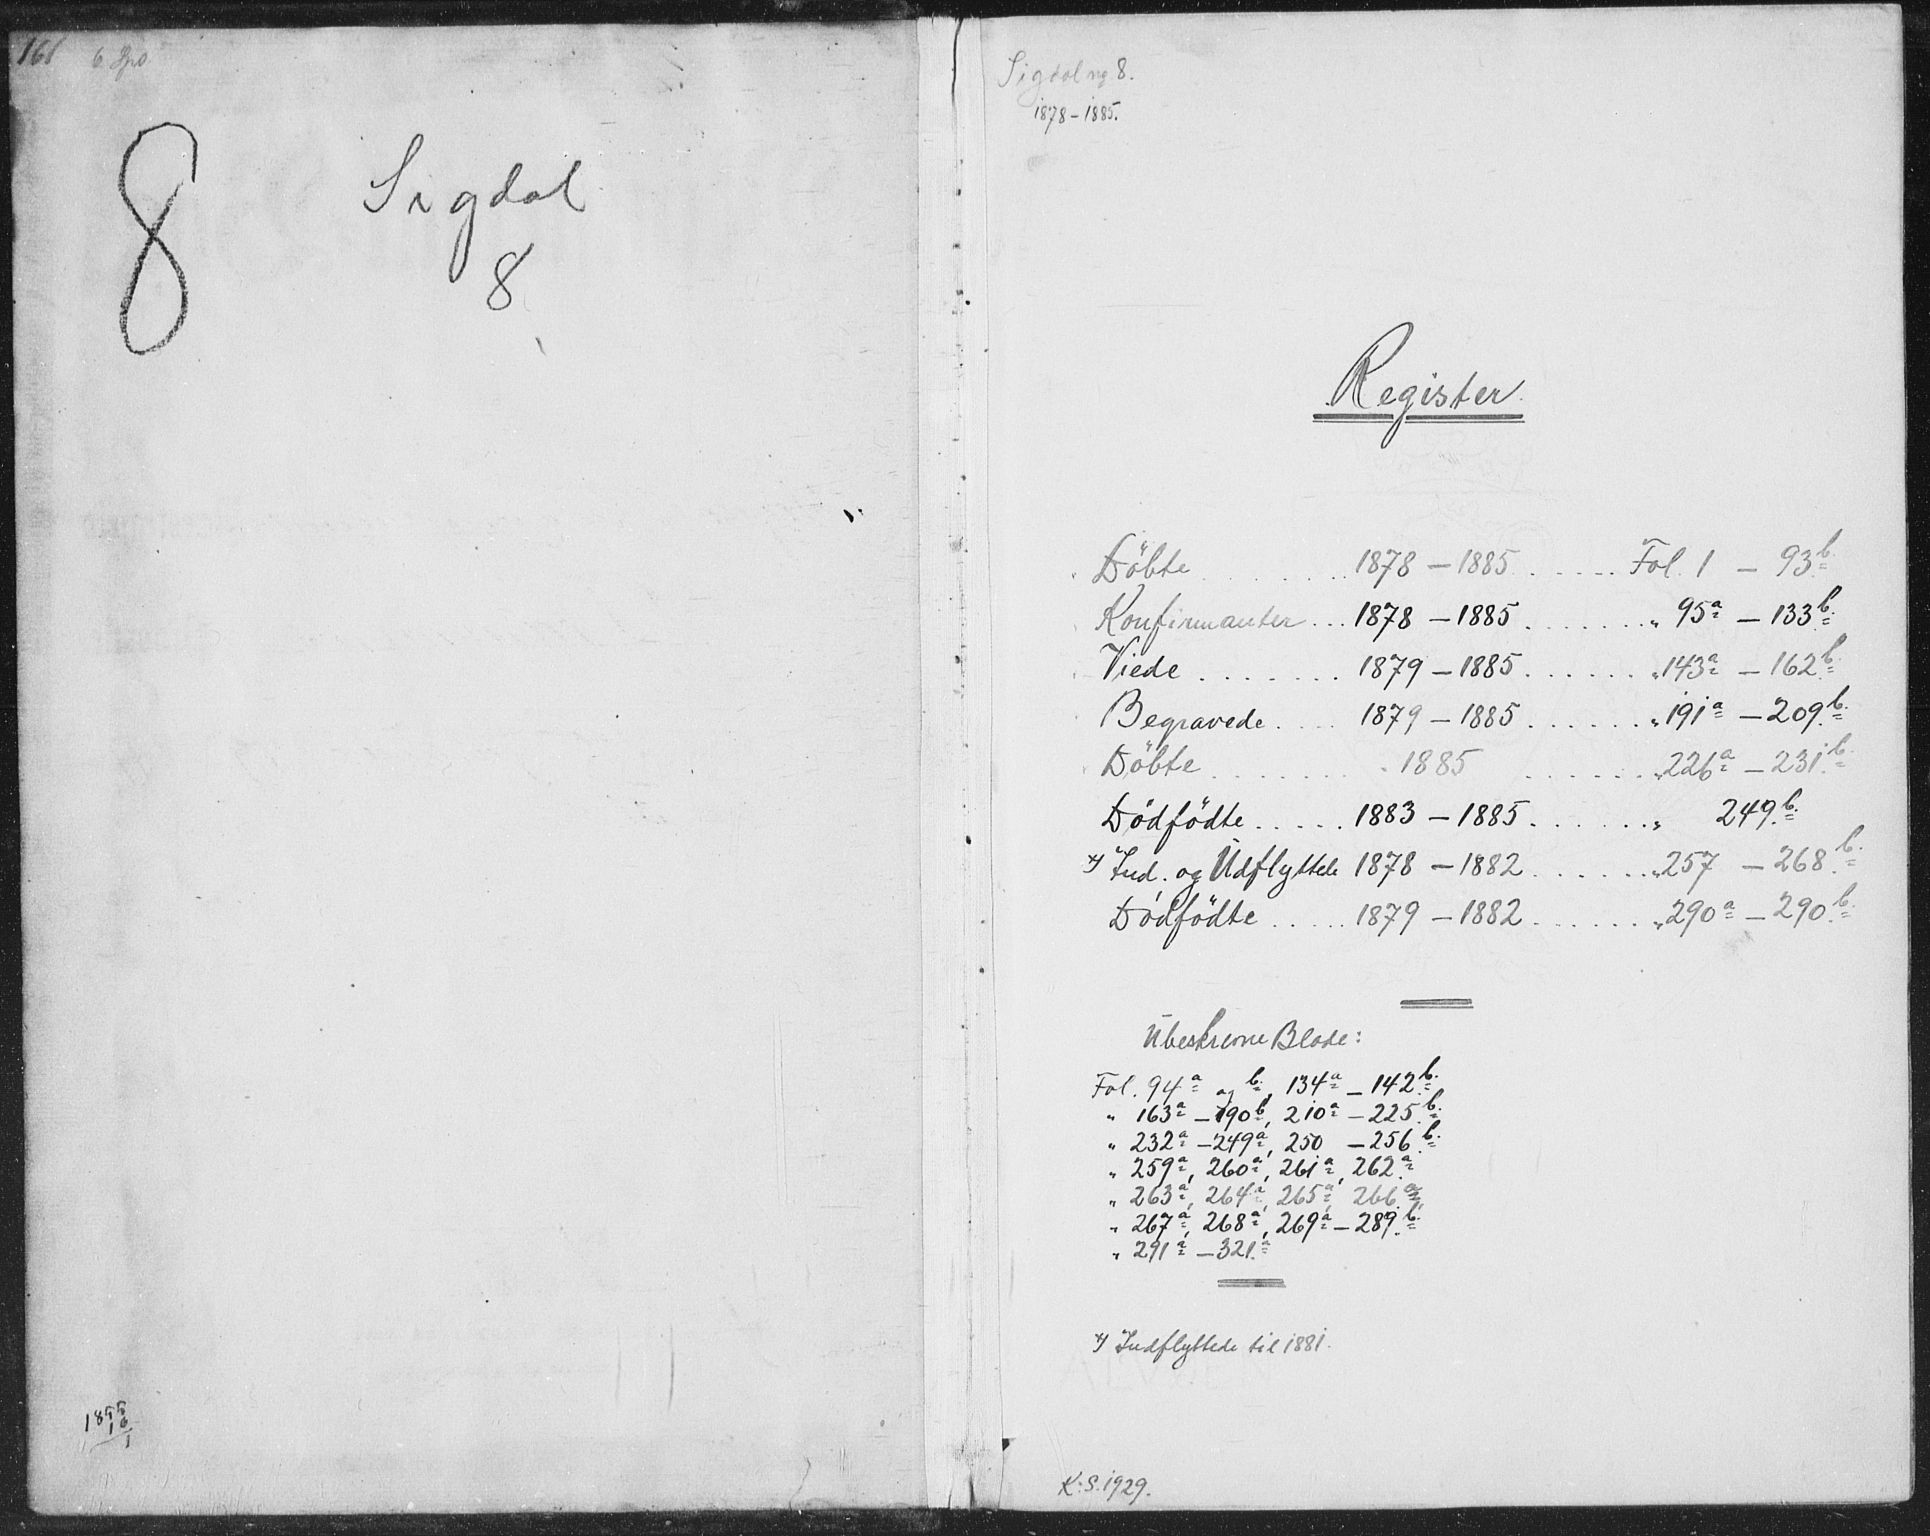 8
Sigdal
8
Sigdal nr 8.
1878-1885.
Register
Döbte ........ 1878 - 1885 ...... Fol. 1 - 93b.
Konfirmanter ... 1878 - 1885 ....... " 95a - 133b.
Viede ....... 1879 - 1885 ...... " 143a - 162b.
Begravede .... 1879 - 1885 ...... " 191a - 209b.
Döbte ........ 1885 ...... " 226a - 231b.
Dödfödte ..... 1883 - 1885 ...... " 249b.
*) Ind. og Udflyttede 1878 - 1882 ...... " 257 - 268b.
Dödfödte ..... 1879 - 1882 ...... " 290a - 290b.
Ubeskrevne Blade:
Fol. 94a og b, 134a - 142b.
" 163a - 190b, 210a - 225b.
" 232a - 249a, 250 - 256b.
" 259a, 260a, 261a, 262a
" 263a, 264a, 265a, 266a
" 267a, 268a, 269a - 289b.
" 291a - 321a
*) Indflyttede til 1881.
K.S. 1929.